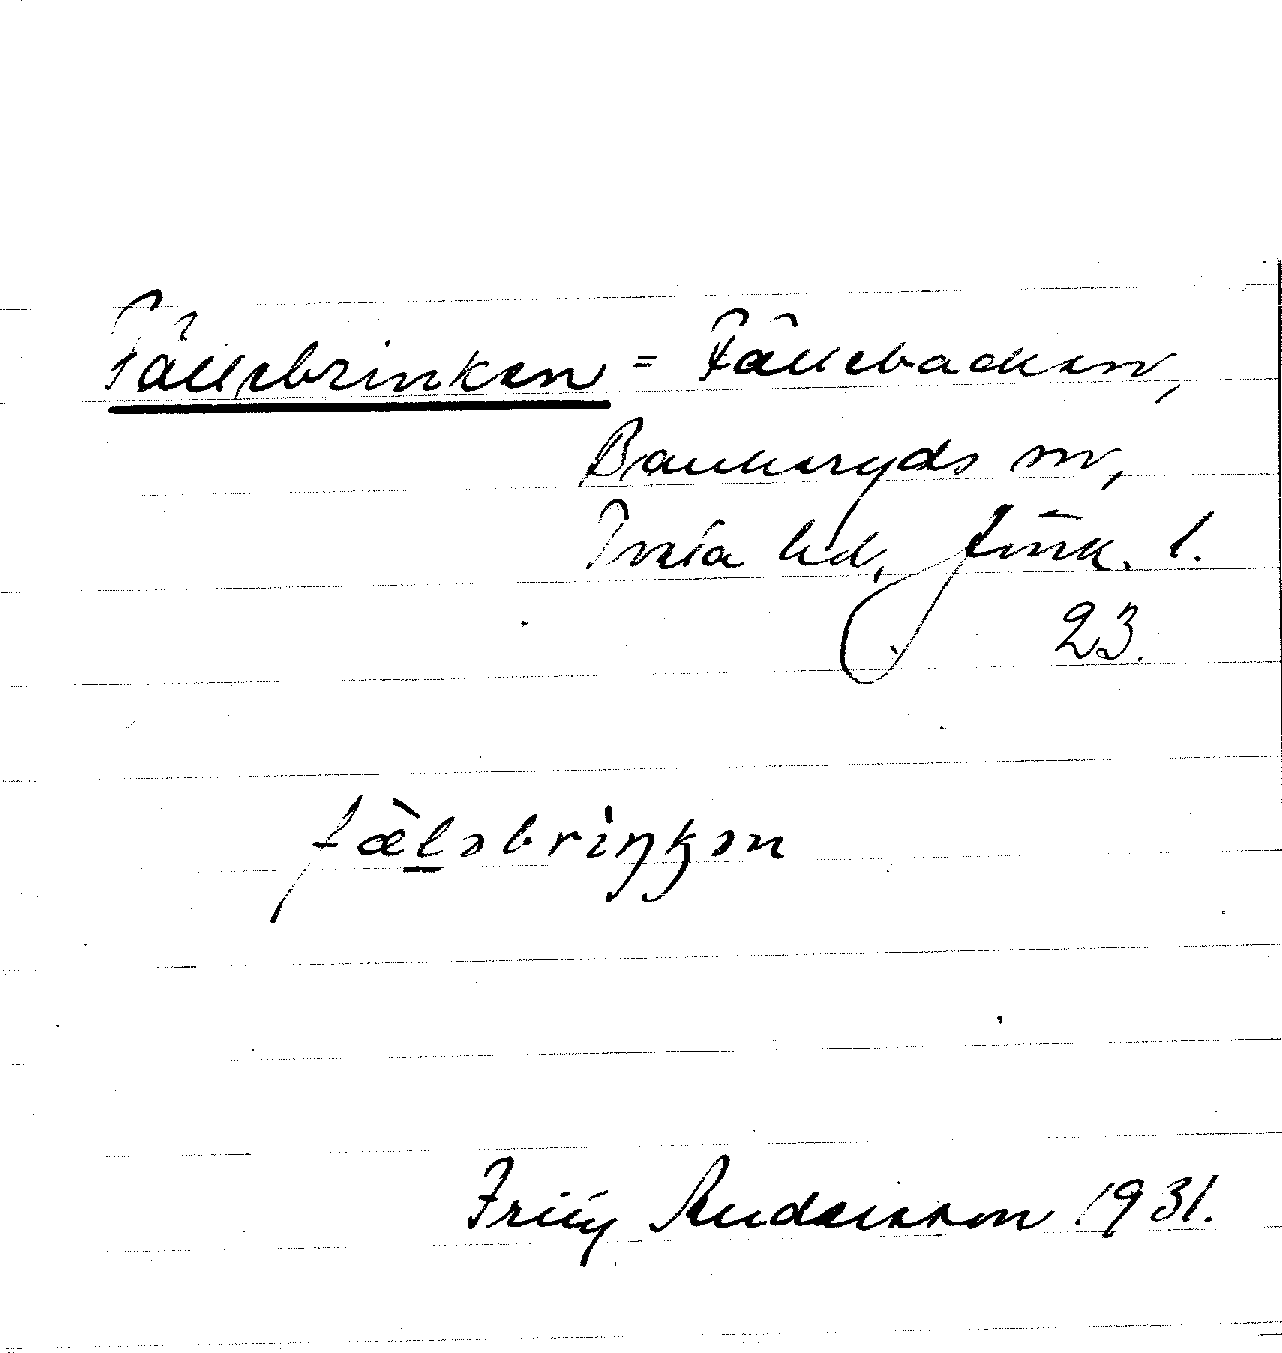 Fällebrinken = Fällebacken,
Bankeryds sn,
Tveta hd, Jönk. l.
23.
fæ̀l̲əbrìŋkən
Friţ Andersson 1931.